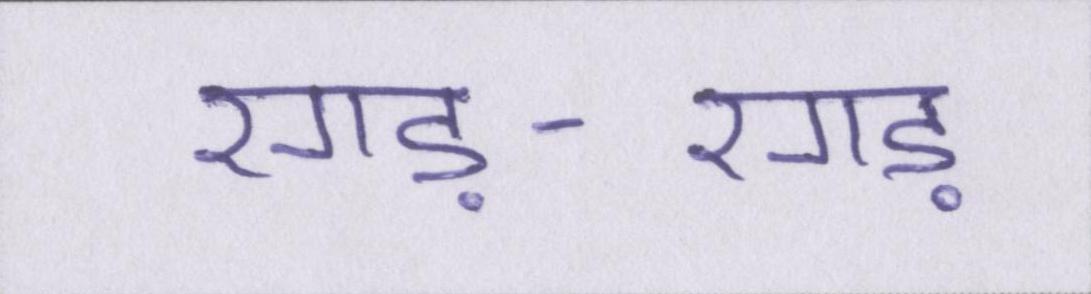 रगड़ - रगड़